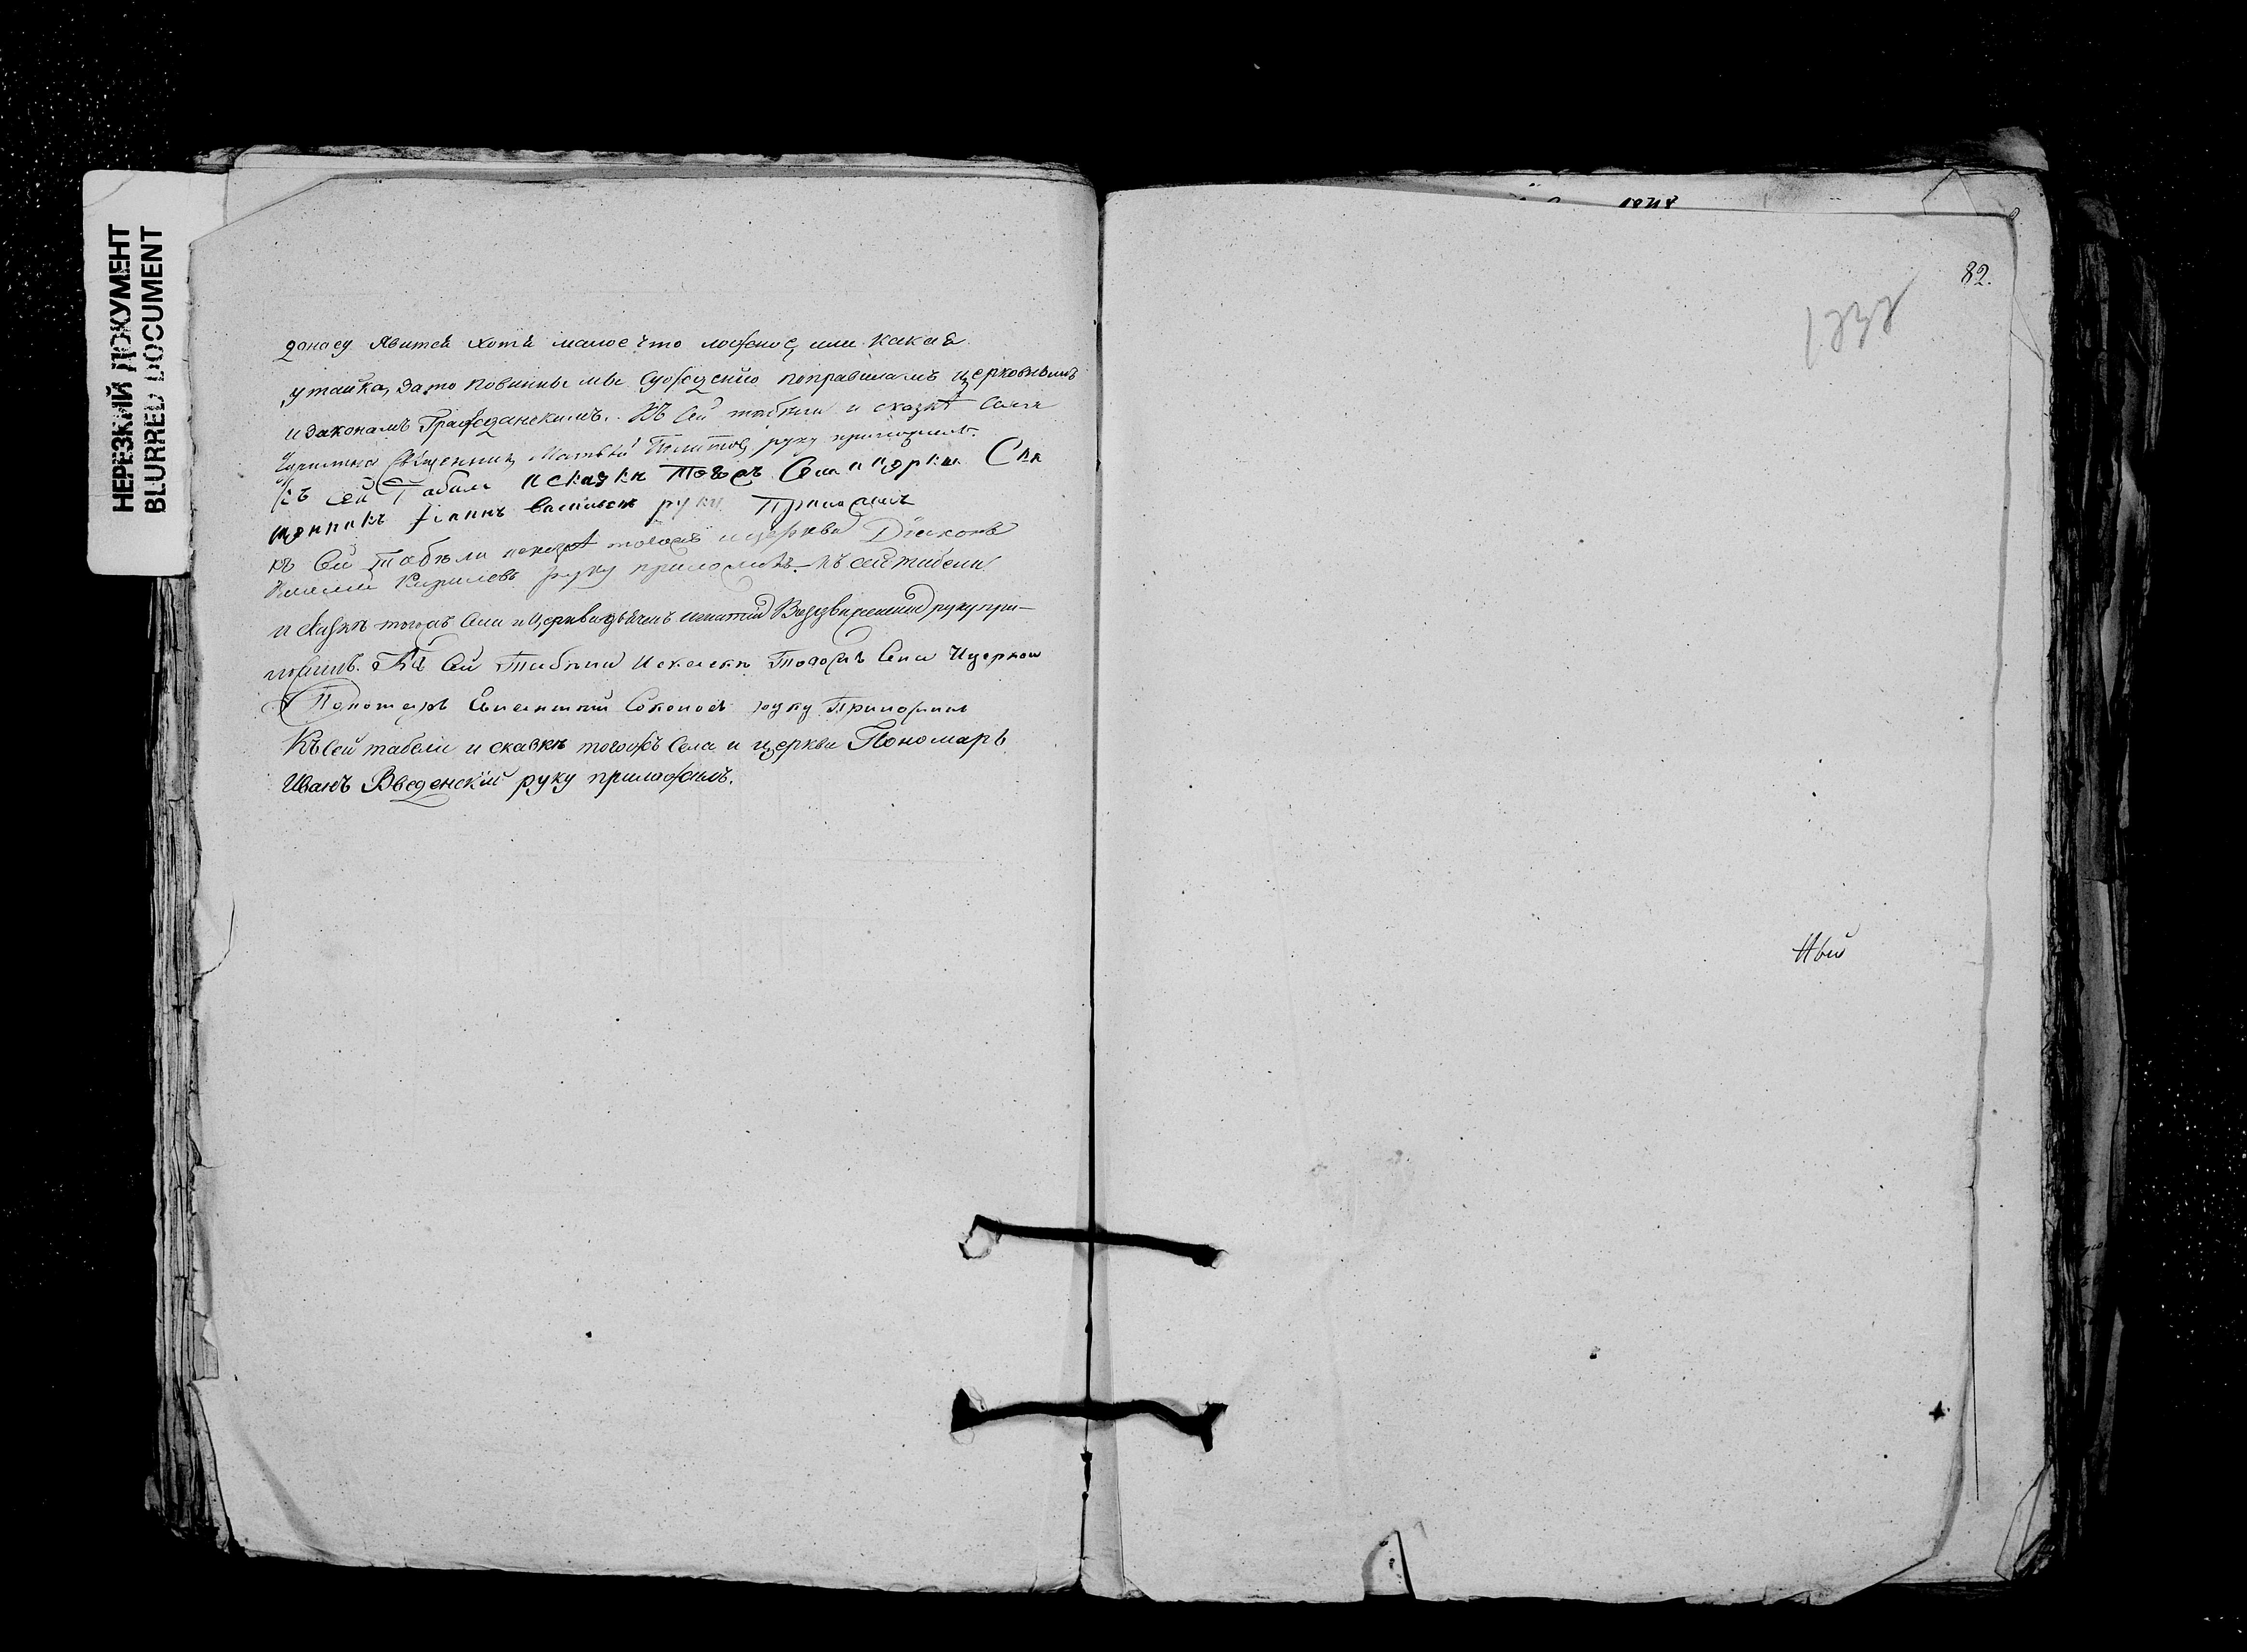 НЕРЕЗКИЙ ДОКУМЕНТ
BLURRED DOCUMENT
явится хотя малое что ложное, или какая
утайка, за то повинны мы суждению по правиламъ церковнымъ
и законамъ Гражданскимъ. Къ сей табели и сказкѣ села
Священникъ Матвѣй руку приложилъ.
Къ сей Табели и сказкѣ тогожъ Села и церкви Свя
щенникъ Іоаннъ Васильевъ руку Приложилъ
къ сей табели и сказкѣ тогожъ и церкви Діаконъ
Кириловъ руку приложилъ. Къ сей табели
и сказкѣ тогожъ села и церкви дьячекъ Игнатий Воздвиженский руку при-
ложилъ. Къ сей Табели и скаски Тогожъ Села и церкви
Пономарь Евлампий Соколовъ руку Приложилъ
Къ сей табели и сказкѣ тогожъ села и церкви Пономарь
Иванъ Введенскій руку приложилъ.
82.